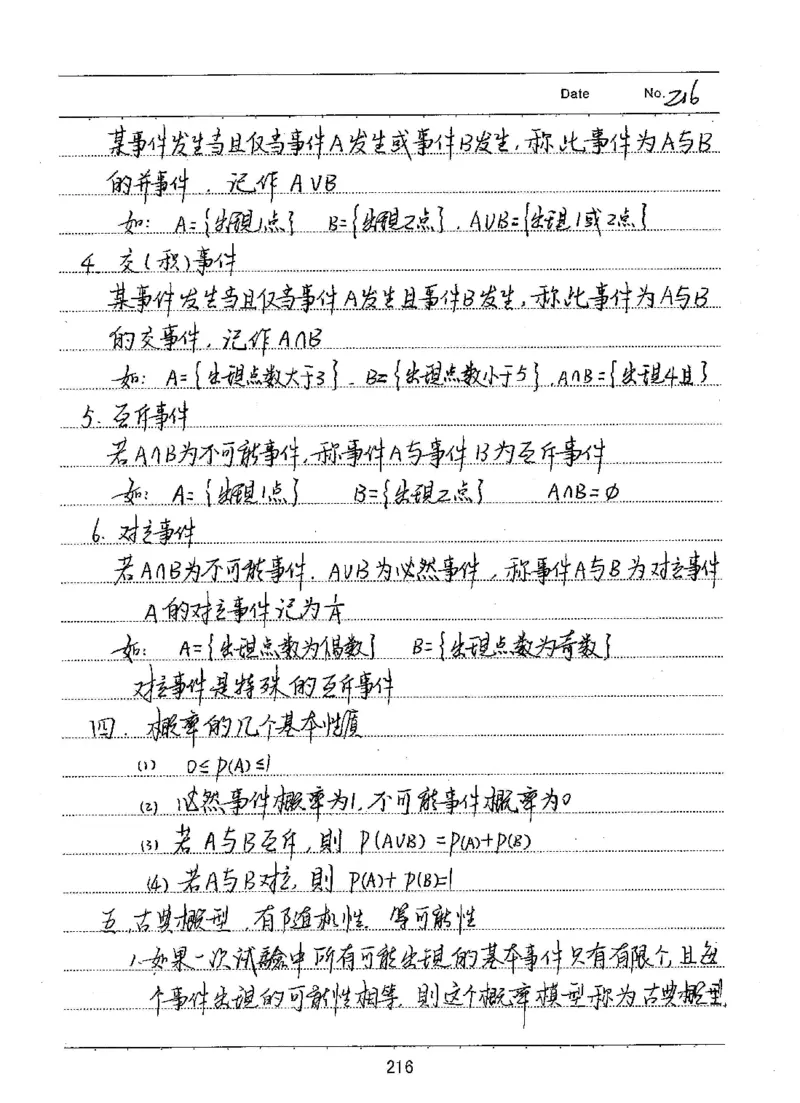 Date No. 216
某事件发生当且仅当事件A发生或事件B发生,称此事件为A与B
的并事件,记作A∪B
如: A={出现1点} B={出现2点},A∪B={出现1或2点}
4. 交(积)事件
某事件发生当且仅当事件A发生且事件B发生,称此事件为A与B
的交事件,记作A∩B
如: A={出现点数大于3}、B={出现点数小于5},A∩B={出现4且}
5. 互斥事件
若A∩B为不可能事件,称事件A与事件B为互斥事件
如: A={出现1点} B={出现2点} A∩B=∅
6. 对立事件
若A∩B为不可能事件,A∪B为必然事件,称事件A与B为对立事件
A的对立事件记为Ā
如: A={出现点数为偶数} B={出现点数为奇数}
对立事件是特殊的互斥事件
四. 概率的几个基本性质
(1) 0≤P(A)≤1
(2) 必然事件概率为1,不可能事件概率为0
(3) 若A与B互斥,则 P(A∪B)=P(A)+P(B)
(4) 若A与B对立,则 P(A)+P(B)=1
五.古典概型,有随机性,等可能性
1.如果一次试验中所有可能出现的基本事件只有有限个,且每
个事件出现的可能性相等,则这个概率模型称为古典概型
216